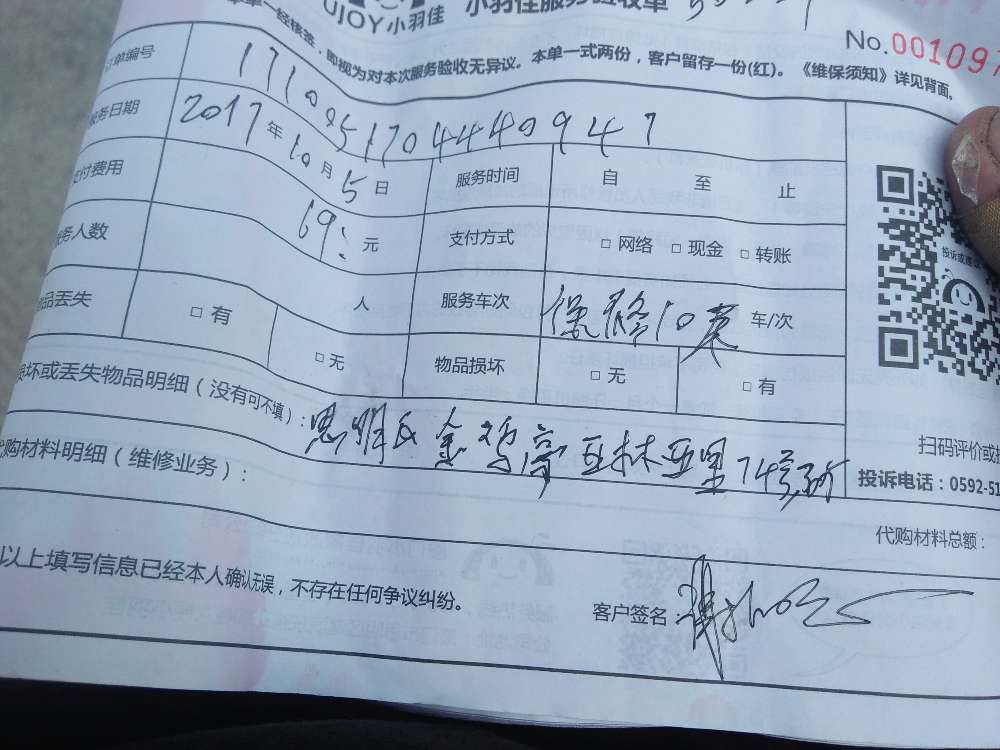 UJOY小羽佳 小羽佳服务验收单
No.001097
本单一经核签，即视为对本次服务验收无异议。本单一式两份，客户留存一份(红)。《维保须知》详见背面。
订单编号 1710051704440947
服务日期 2017年10月5日 服务时间 自 至 止
支付费用 69: 元 支付方式 □ 网络 □ 现金 □ 转账
服务人数 人 服务车次 保修10 车/次
物品丢失 □ 有 □ 无 物品损坏 □ 无 □ 有
损坏或丢失物品明细（没有可不填）:
代购材料明细（维修业务）: 思明区金鸡亭 林亚里74号
扫码评价或投
投诉电话：0592-51
代购材料总额：
以上填写信息已经本人确认无误，不存在任何争议纠纷。
客户签名：